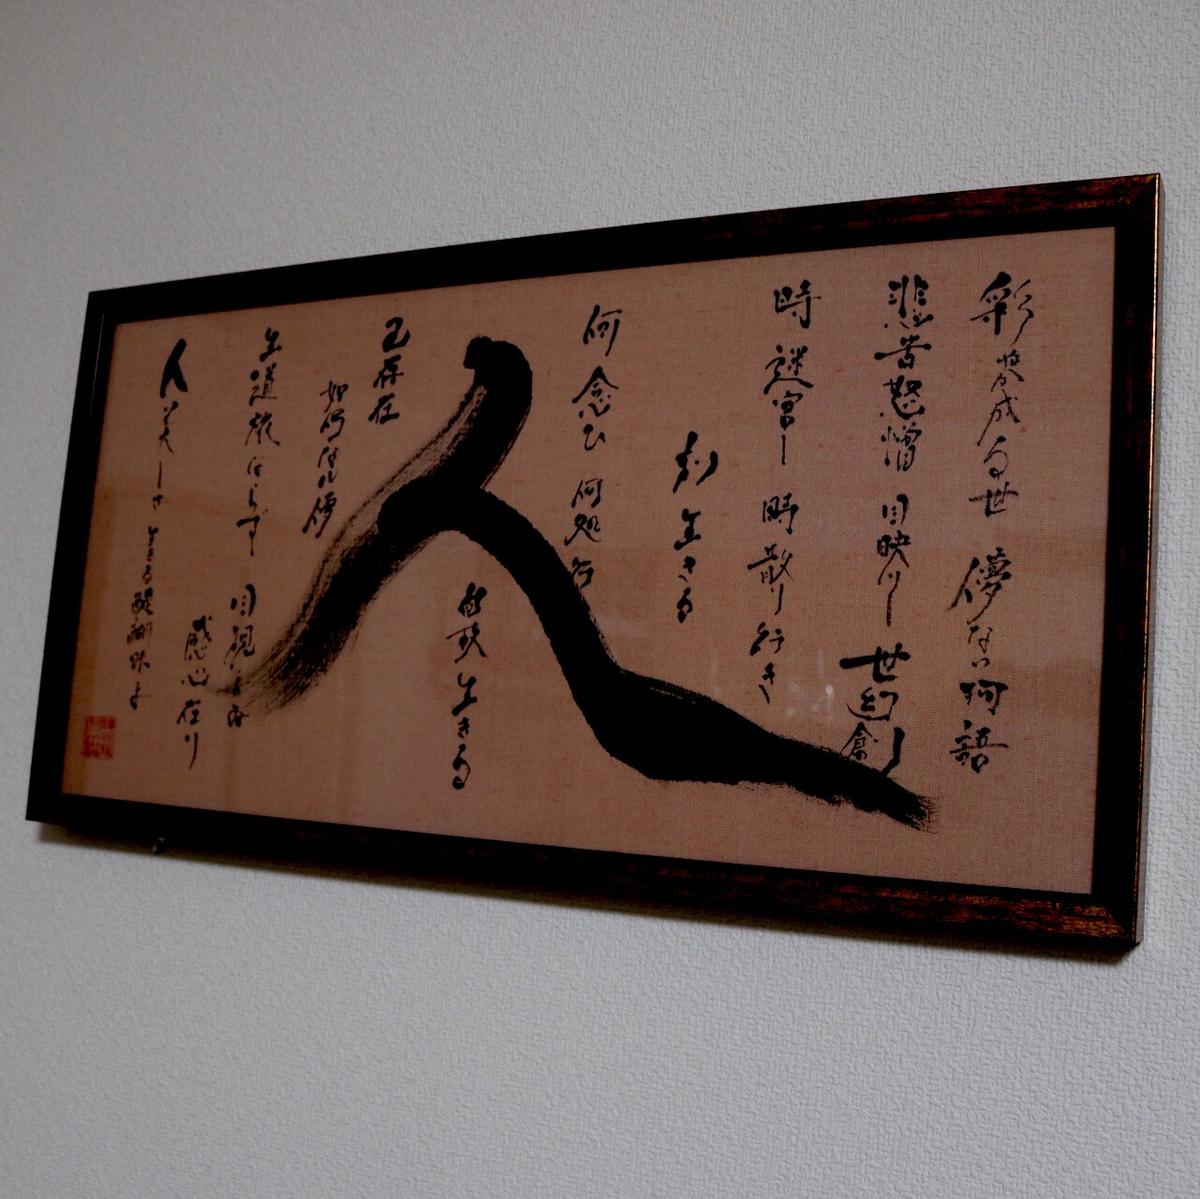 彩 成る世 儚ない物語
悲苦怒憎 目映りし 世幻創
時 迷宮し 時散り行き
刻 生きる
何念ひ 何処行
人
自求 生きる
己存在
如何な儚
生道旅はらず 目視
感心在り
人美しさ 生きる醍醐味よ